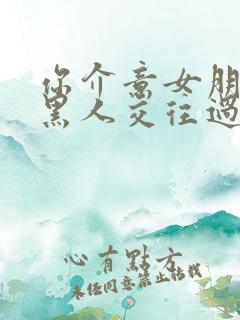 你介意女朋
黑人交往過
心有點方
未经同意禁止转载